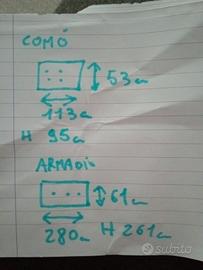 COMÓ
53cm
113cm
H 95cm
ARMADIO
61cm
280cm H 261cm
subito